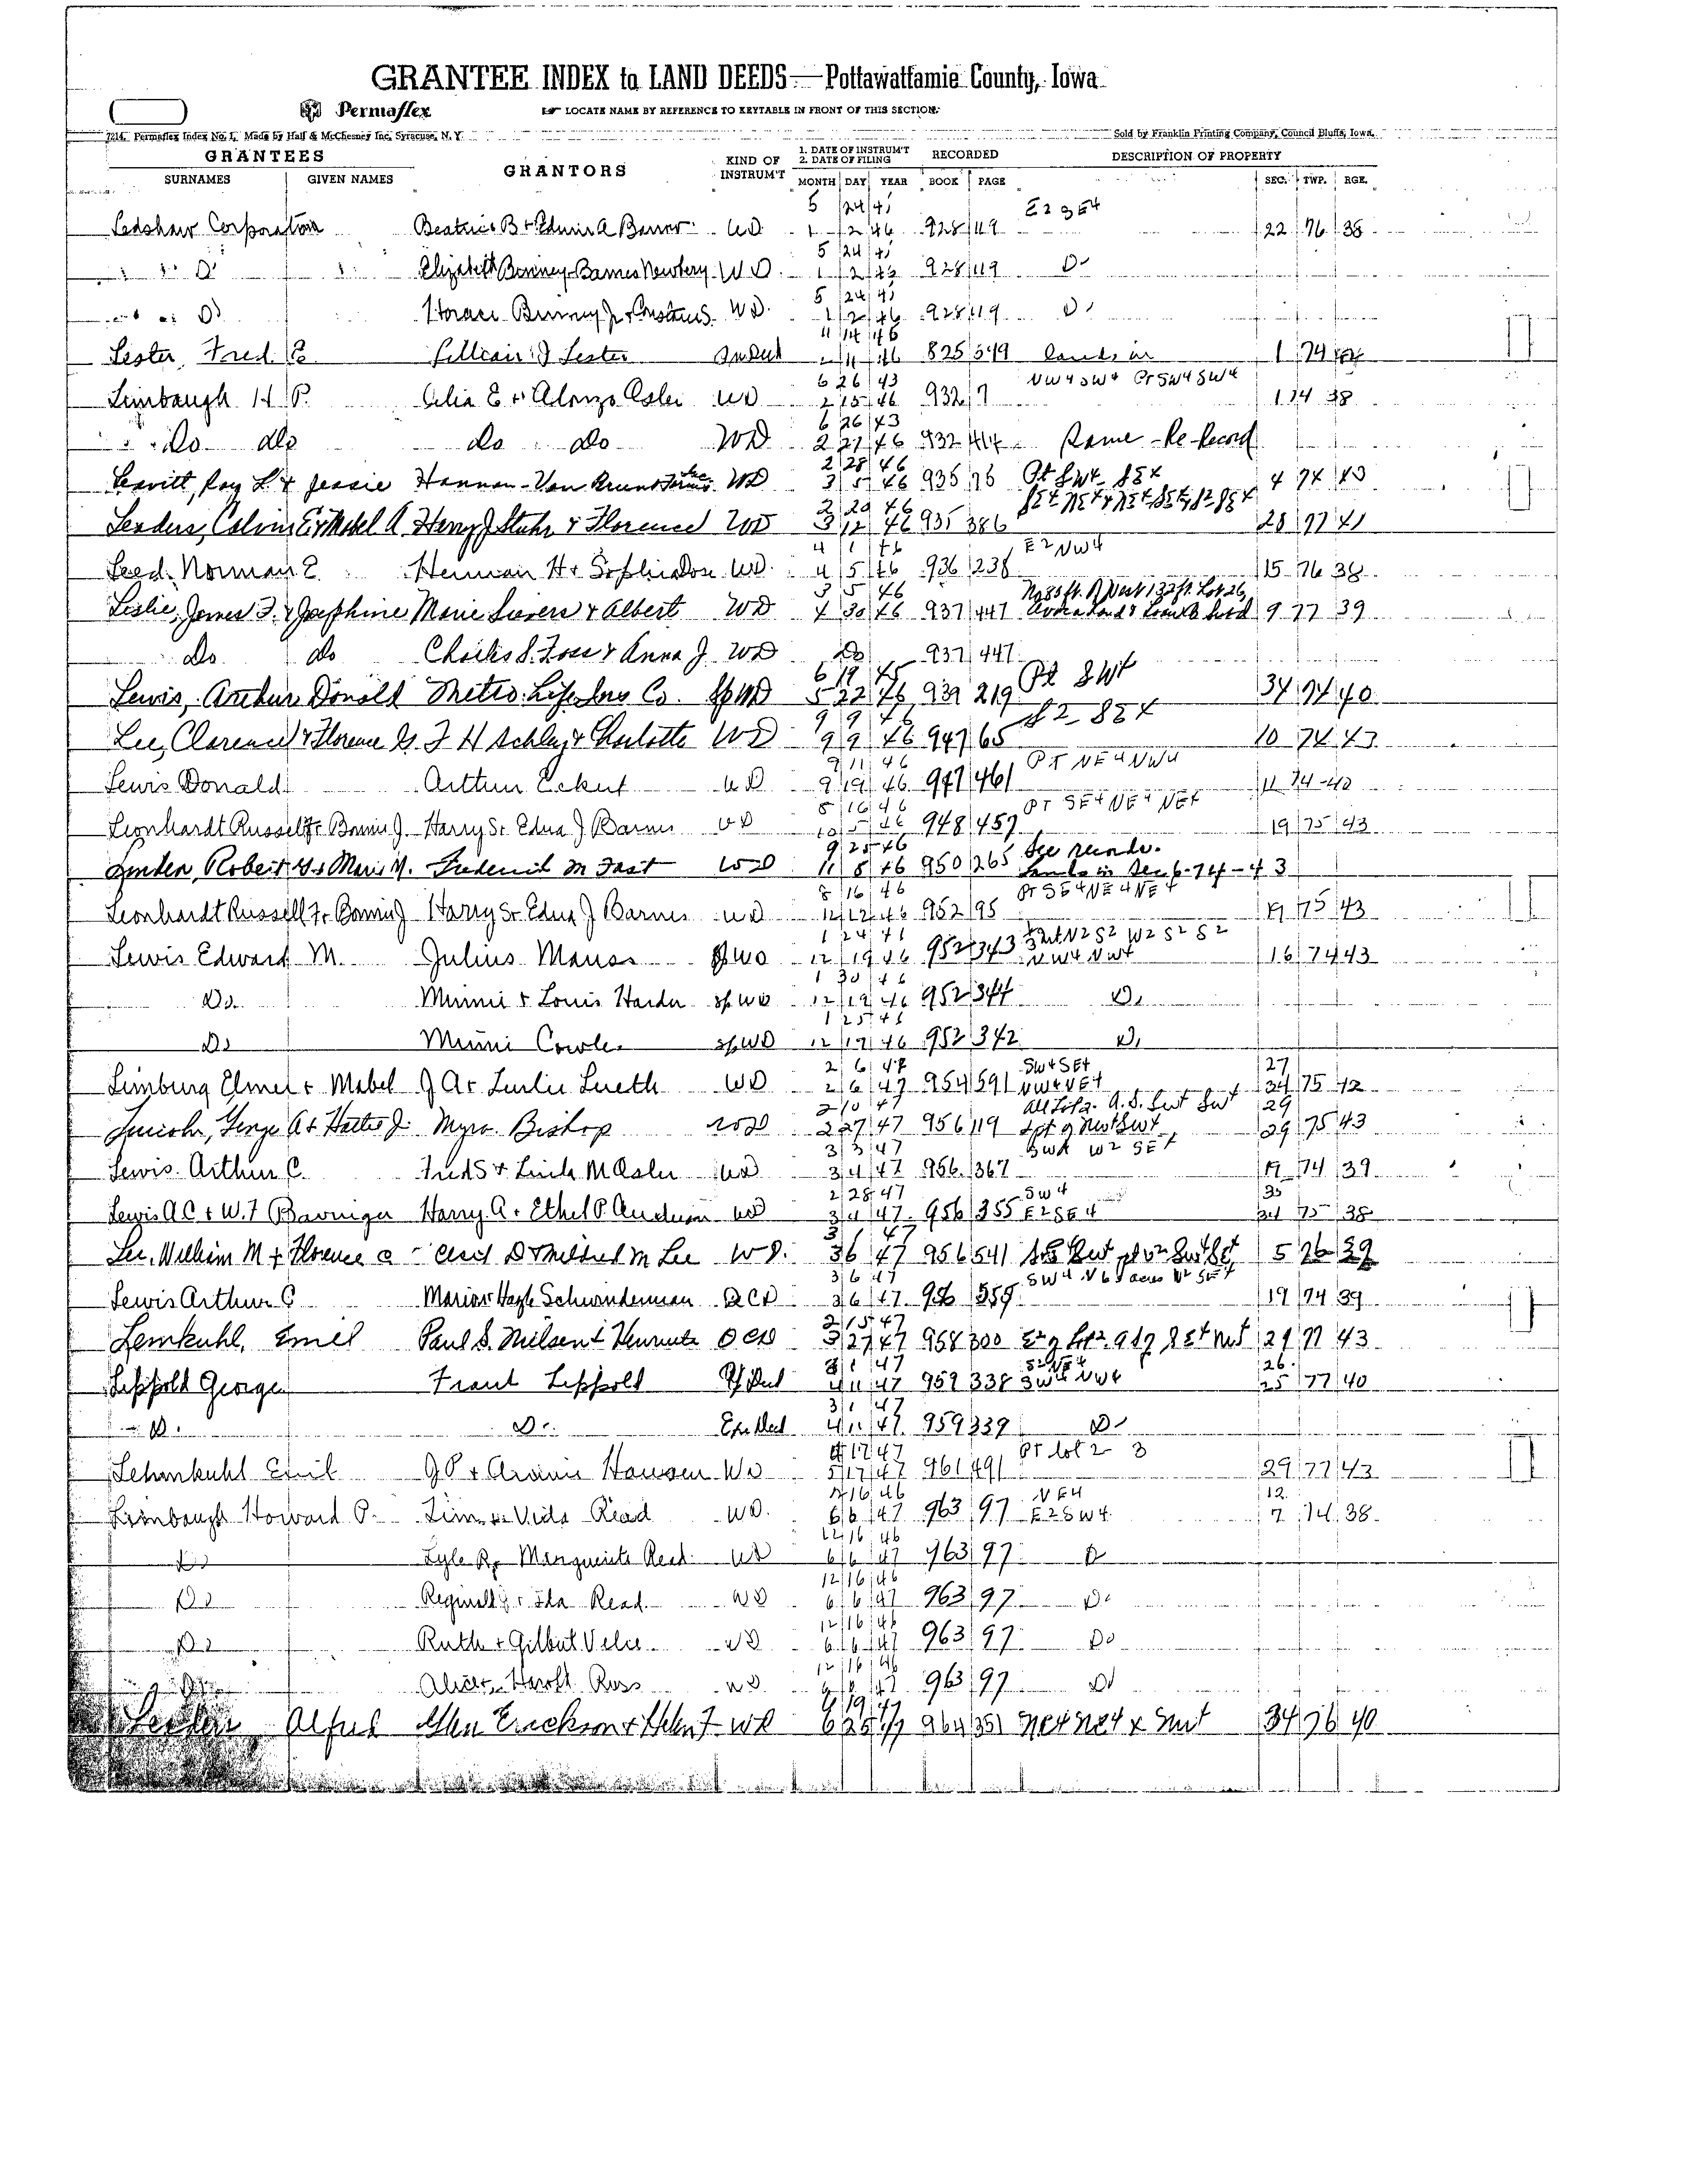 GRANTEE INDEX to LAND DEEDS—Pottawattamie County, Iowa
Permaflex
LOCATE NAME BY REFERENCE TO KEYTABLE IN FRONT OF THIS SECTION.
7214 Permaflex Index No. 1, Made by Hall & McChesney Inc, Syracuse, N. Y. Sold by Franklin Printing Company, Council Bluffs, Iowa.
GRANTEES GRANTORS KIND OF INSTRUM'T 1. DATE OF INSTRUM'T 2. DATE OF FILING RECORDED DESCRIPTION OF PROPERTY
SURNAMES GIVEN NAMES MONTH DAY YEAR BOOK PAGE SEC. TWP. RGE.
5 24 41 E2 SE4
Ledshaw Corporation Beatrice B + Edwin A WD 1 2 46 928 119 22 76 38
5 24 41
Do Elizabeth Binney Barnes Newbery WD 1 2 46 928 119 Do
5 24 41
Do Horace Binney Jr + WD 1 2 46 928 119 Do
Lester, Fred Lillian J Lester 825 549 lands in 1 74
6 26 43 NW4 SW4 Pt SW4 SW4
Limbaugh H P. Celia E + Alonzo Osler WD 2 15 46 932 7 1 74 38
6 26 43
Do do do do WD 2 27 46 932 414 Same - Re-Record
2 28 46
Leavitt, Ray L + Jessie Hannan-Van Brunt WD 3 5 46 935 76 Pt SW4 SE4 4 74 43
2 20 46 SE4 NE4 + NE4 SE4, S2 SE4
Lenders, Calvin E + Mabel A Henry J Stuhr + Florence WD 3 12 46 935 386 28 77 41
4 1 46 E2 NW4
Leed Norman E Herman H + Sophia WD 4 5 46 936 238 15 76 38
3 5 46 No 85 ft. of West 132 ft. Lot 26,
Leslie, James F. + Josephine Marie Sievers + Albert WD 4 30 46 937 447 9 77 39
do do Charles S. Foss + Anna J. WD Do 937 447
6 19 45 Pt SW4
Lewis, Arthur Donald Metro. Life Ins Co. Sp WD 5 22 46 939 219 34 74 40
9 9 46 S2 SE4
Lee, Clarence + Florence G. F H Schley + Charlotte WD 9 9 46 947 65 10 74 43
9 11 46 PT NE4 NW4
Lewis Donald Arthur Eckert WD 9 19 46 947 461 11 74-40
8 16 46 PT SE4 NE4 NE4
Leonhardt Russell F + Bonnie J. Harry S + Edna J Barnes WD 10 5 46 948 457 19 75 43
9 25 46 See reinde.
Linden, Robert G + Marie M. Frederick M Fast WD 11 8 46 950 265 Lands in Sec 6-74-43
8 16 46 Pt SE4 NE4 NE4
Leonhardt Russell F + Bonnie J Harry S + Edna J Barnes WD 12 12 46 952 95 19 75 43
1 24 41 N2 S2 W2 S2 S2
Lewis Edward M. Julius Mauss Sp WD 12 19 46 952 343 NW4 NW4 16 74 43
1 30 46
Do. Minnie + Louis Harder Sp WD 12 19 46 952 344 Do
1 25 46
Do Minnie Cowles Sp WD 12 19 46 952 342 Do
2 6 47 SW4 SE4 27
Limburg Elmer + Mabel J A + Leslie Lueth WD 2 6 47 954 591 NW4 NE4 34 75 42
2 10 47 All Lot 2. A. S. SW4 SW4 29
Lincoln, George A + Hattie J. Myra Bishop WD 2 27 47 956 119 Lot 9 NW4 SW4 29 75 43
3 3 47 SW4 W2 SE4
Lewis Arthur C. Fred S + Linda M Osler WD 3 4 47 956 367 19 74 39
2 28 47 SW4 35
Lewis A C + W.F Barninger Harry A. + Ethel P. Anderson WD 3 4 47 956 355 E2 SE4 34 75 38
3 47
Lee, William M + Florence C Cecil D + Mildred M Lee WD. 3 6 47 956 541 5 76 39
3 6 47 SW4 N 69 acres W2 SE4
Lewis Arthur C Marion Hazle Schwinderman QCD 3 6 47 956 559 19 74 39
2 15 47
Lemkuhl, Emil Paul S. Nielsen + QCD 3 27 47 958 300 29 77 43
3 1 47 S2 NE4 26
Leppold George Frank Leppold 4 11 47 959 338 SW4 NW4 25 77 40
3 1 47
Do. Do. Ex Deed 4 11 47 959 339 Do
4 17 47 PT lot 2 3
Lehmkuhl Emil J P + Hansen WD 5 17 47 961 491 29 77 43
12 16 46 NE4 12
Limbaugh Howard P. Jim + Vida Read WD. 6 6 47 963 97 E2 SW4 7 74 38
12 16 46
Do Lyle R + Marguerite Read WD 6 6 47 963 97 Do
12 16 46
Do Reginald J + Ida Read WD 6 6 47 963 97 Do
12 16 46
Do Ruth + Gilbert WD 6 6 47 963 97 Do
12 16 46
Do Alice + Harold Ross WD 6 6 47 963 97 Do
6 19 47
Alfred Erickson + Helen F WD 6 25 47 964 351 NE4 NE4 + SW4 34 76 40